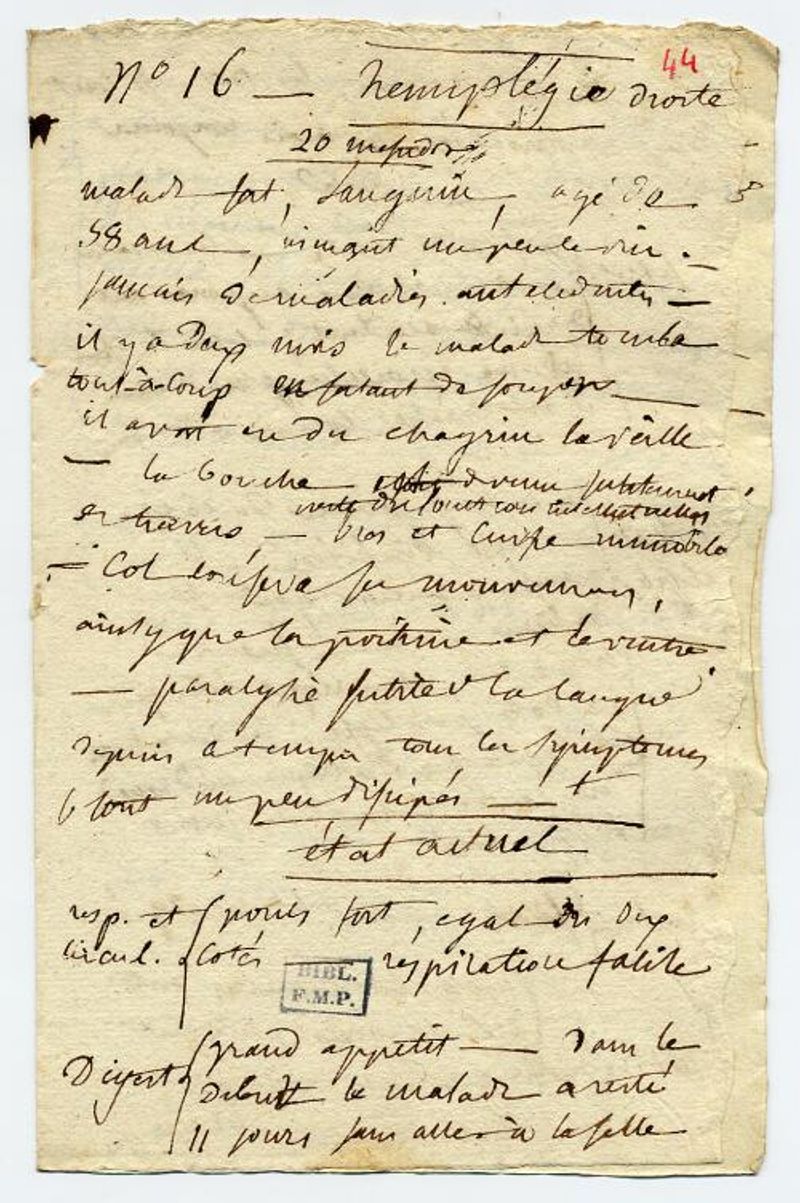 44
No 16 — hemiplégie droite
20 messidor
malade fort, sanguin, agé de
58 ans, aimant un peu le vin. —
jamais de maladies antecedentes —
il y a deux mois le malade tomba
tout-à-coup en de souper —
il avoit eu du chagrin la veille
— la bouche devenue subitement
perte des fonctions intellectuelles
en travers, — bras et cuisse immobile
— Col conserve ses mouvemens,
ainsy que la poitrine et le ventre
— paralysie subite de la langue
depuis ce temps tous les symptomes
se sont un peu dissipés — +
état actuel
resp. et pouls fort, egal des deux
circul. cotés respiration facile
BIBL.
F.M.P.
Digest grand appetit — dans le
debut le malade a resté
11 jours sans aller à la selle